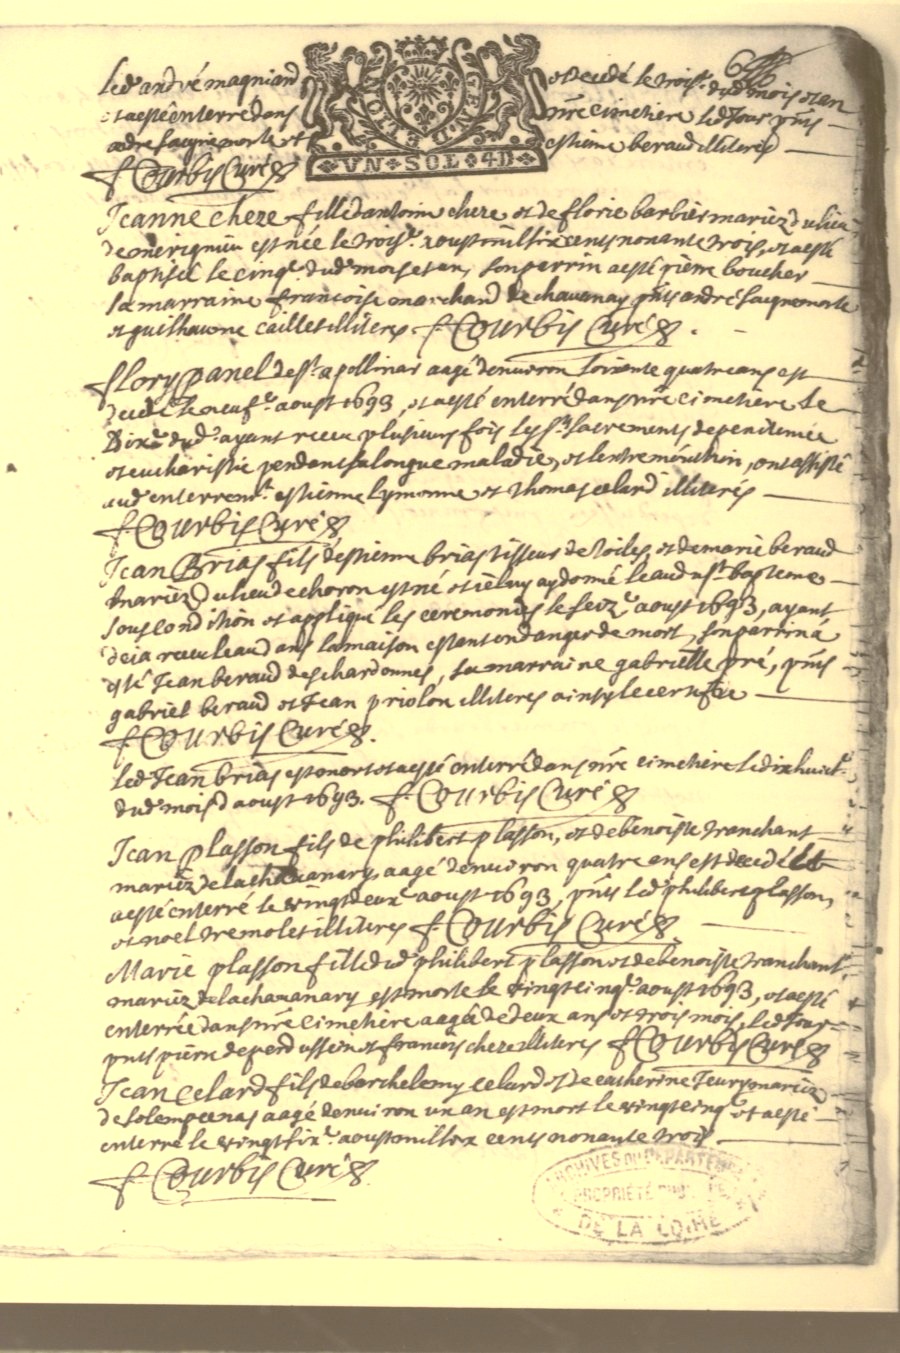 led. andré magniand est decedé le trois.e dud. mois et an
et a esté enterré dans nre cimetiere led. Jour pnts
andre laignemorte et estienne beraud illiteres
GENE
VN·SOL·4D·
f Courbis Curé
Jeanne cheze fille dantoine cheze et de florie barbier mariez du lieu
de merignieu est née le trois.e aoust mil six cents nonante trois, et a esté
baptisée le cinq.e dud. mois et an, son parrin a esté pierre boucher
sa marraine francoise marchand de chauanay pnts andré laignemorte
et guilhaume caillet illiteres f Courbis Curé
flory panel de st. apollinar aagé denuiron soixante quatre ans est
decedé le neuf.e aoust 1693, et a esté enterré dans nre cimetiere le
Dix.e dud. ayant receu plusieurs fois les sts. sacrements de penitence
et eucharistie pendant sa longue maladie, et lextremeonction, ont assisté
aud. enterremt. estienne lymonne et thomas celard illiterés
f Courbis Curé
Jean Brias fils destienne brias tisseur de toiles, et de marie beraud
mariez du lieu de choron est né et ie luy ay donné leau du st. bapteme
sous condition et appliqué les ceremonies le seiz.e aoust 1693, ayant
deia receu leau dans la maison estant en danger de mort, son parrin à
esté Jean beraud des chardonnes, sa marraine gabrielle pré, pnts
gabriel beraud et Jean priolon illiteres ainsy le certifie
f Courbis Curé.
led. Jean brias est mort et a esté enterré dans nre cimetiere le dixhuict.e
dud. mois d aoust 1693. f Courbis Curé
Jean plasson fils de philibert plasson, et de benoiste tranchant
mariez de la chauanary, aagé denuiron quatre ans est decedé et
a esté enterré le vingtdeux.e aoust 1693, pnts led. philibert plasson,
et noel tremolet illiteres f Courbis Curé.
Marie plasson fille dud. philibert plasson et de benoiste tranchant
mariez de la chauanary est morte le vingtcinq.e aoust 1693, et a esté
enterrée dans nre cimetiere aagée de deux ans et trois mois, led. Jour
pnts pierre deperdussein et francois cheze illiteres f Courbis Curé
Jean Celard fils de barthelemy celard et de catherine Teury mariez
de solempcenas aagé denuiron un an est mort le vingtcinq.e et a esté
enterré le vingtsix.e aoust mil six cents nonante trois.
f Courbis Curé.
ARCHIVES DU DEPARTEMENT
PROPRIÉTÉ PUBLIQUE
DE LA LOIRE